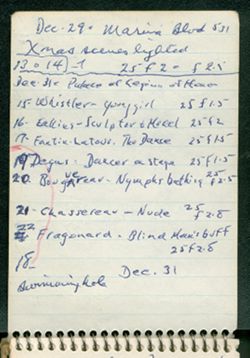 Dec. 29. Marina Blvd 531
Xmas scenes lighted
13 o 14) -1 25 f2 = f2.5
Dec. 31 - Palace of Legion of Honor
15 - Whistler - Young girl 25 f1.5
16 - Eakins - Sculptor & Model 25 f2
17 - Fantin-Latour. The Dance 25 f1.5
19 Degas - Dancer on stage 25 f1.5
20. Bouguereau - Nymphs bathing 25 f2.5
21 - Chassereau - Nude 25 f2.8
22 Fragonard - Blind Man's buff
25 f2.8
18 - Dec. 31
Swimming hole